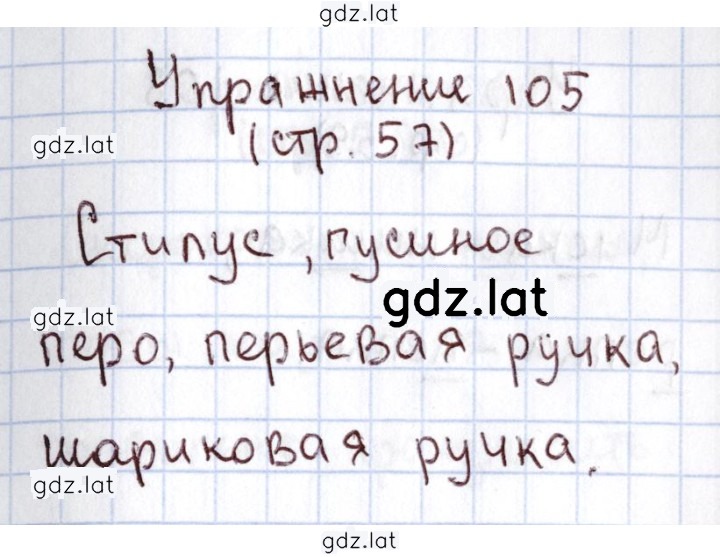 gdz.lat
Упражнение 105
gdz.lat
(стр. 57)
Стилус, гусиное
gdz.lat
gdz.lat
перо, перьевая ручка,
шариковая ручка.
gdz.lat
gdz.lat